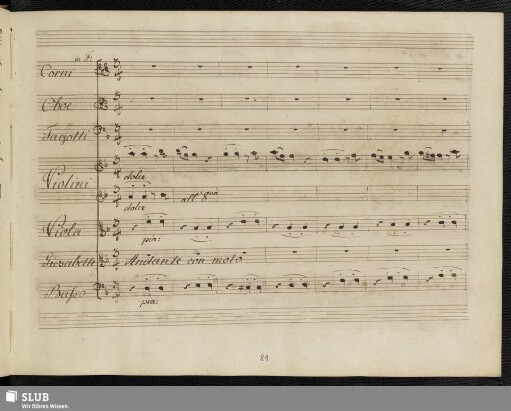 in F:
Corni
Oboe
Fagotti
Violini
dolce
dolce
all' 8va
Viola
pia:
Andante con moto
Basso
pia:
89
SLUB
Wir führen Wissen.